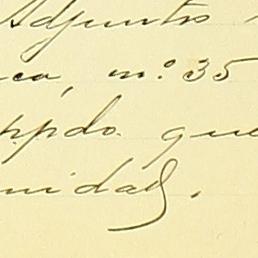 Adjunto
ca, n.º 35
ppdo. que
nidad.